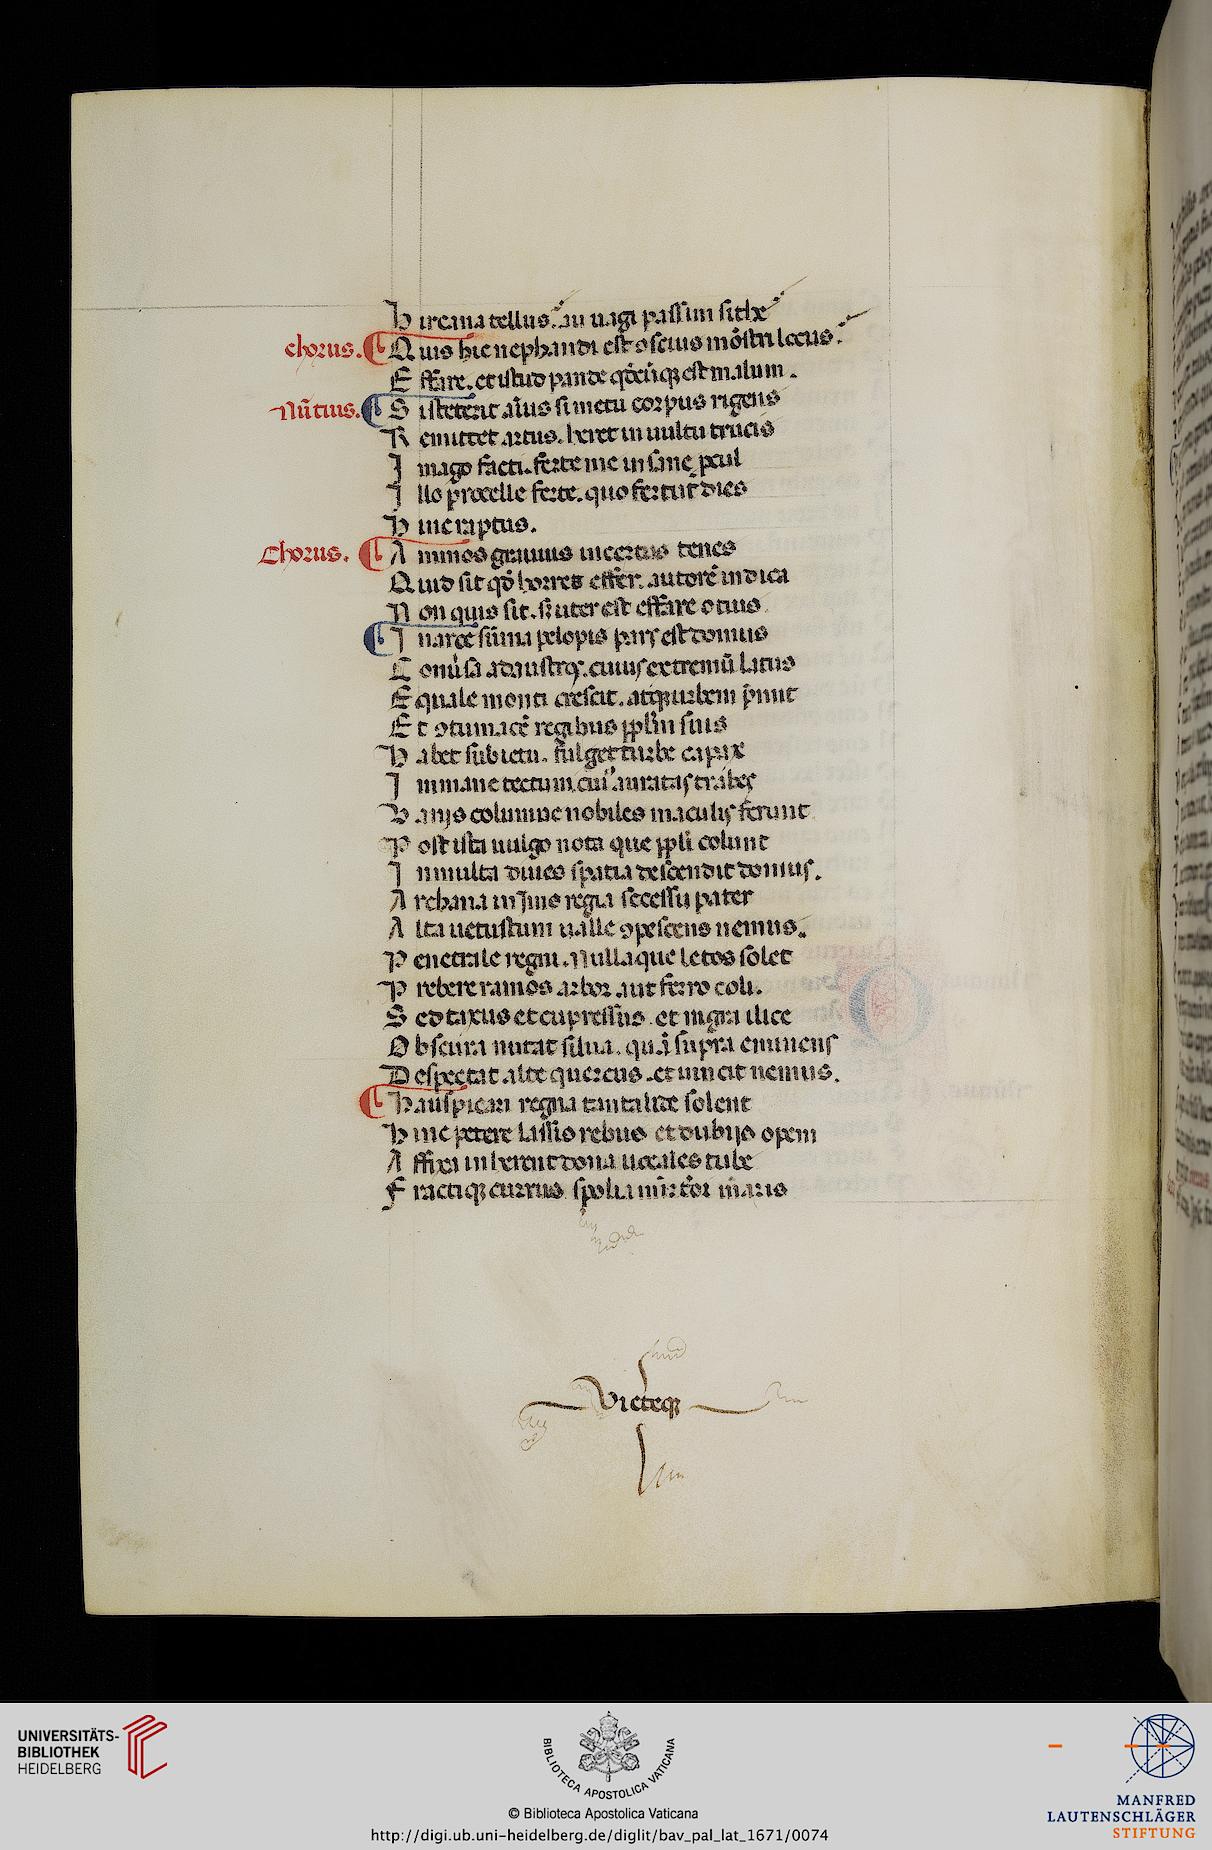 Hircana tellus. an uagi passim sithe
chorus. Quis hic nephandi est ꝯscius mōstri locus.
Effare. et istud pande qdcūqꝫ est malum.
Nūtius. Si steterit aīus si metu corpus rigens
Remittet artus. heret in uultu trucis
Imago facti. ferte me insane ꝓcul
Illo procelle ferte. quo fertur dies
Hinc raptus.
Chorus. Animos grauius incertos tenes
Quid sit qd horres effer. autorē indica
Non quis sit. sꝫ uter est effare ocius
In arce sūma pelopis pars est domus
Conuersa ad austros. cuius extremū latus
Equale monti crescit. atqꝫ urbem p̄mit
Et ꝯtumacē regibus ppl̄m suis
Habet sub ictu. fulget turbe capax
Inmane tectum. cuiꝰ auratas trabes
Varijs columne nobiles maculis ferunt
Post ista uulgo nota que ppl̄i colunt
In multa diues spatia descendit domus.
Archana in imo regia secessu patet
Alta uetustum ualle ꝯpescens nemus.
Penetrale regni. Nulla que letos solet
Prebere ramos arbor aut ferro coli.
Sed taxus et cupressus et nigra ilice
Obscura nutat silua. quā supra eminens
Despectat alte quercus. et uincit nemus.
Hauspicari regna tantalide solent
Hinc petere lassis rebus et dubijs opem
Affixa inherent dona uocales tube
Fractiqꝫ currus spolia mirtoi maris
Victeqꝫ
UNIVERSITÄTS-
BIBLIOTHEK
HEIDELBERG
BIBLIOTECA APOSTOLICA VATICANA
© Biblioteca Apostolica Vaticana
http://digi.ub.uni-heidelberg.de/diglit/bav_pal_lat_1671/0074
MANFRED
LAUTENSCHLÄGER
STIFTUNG